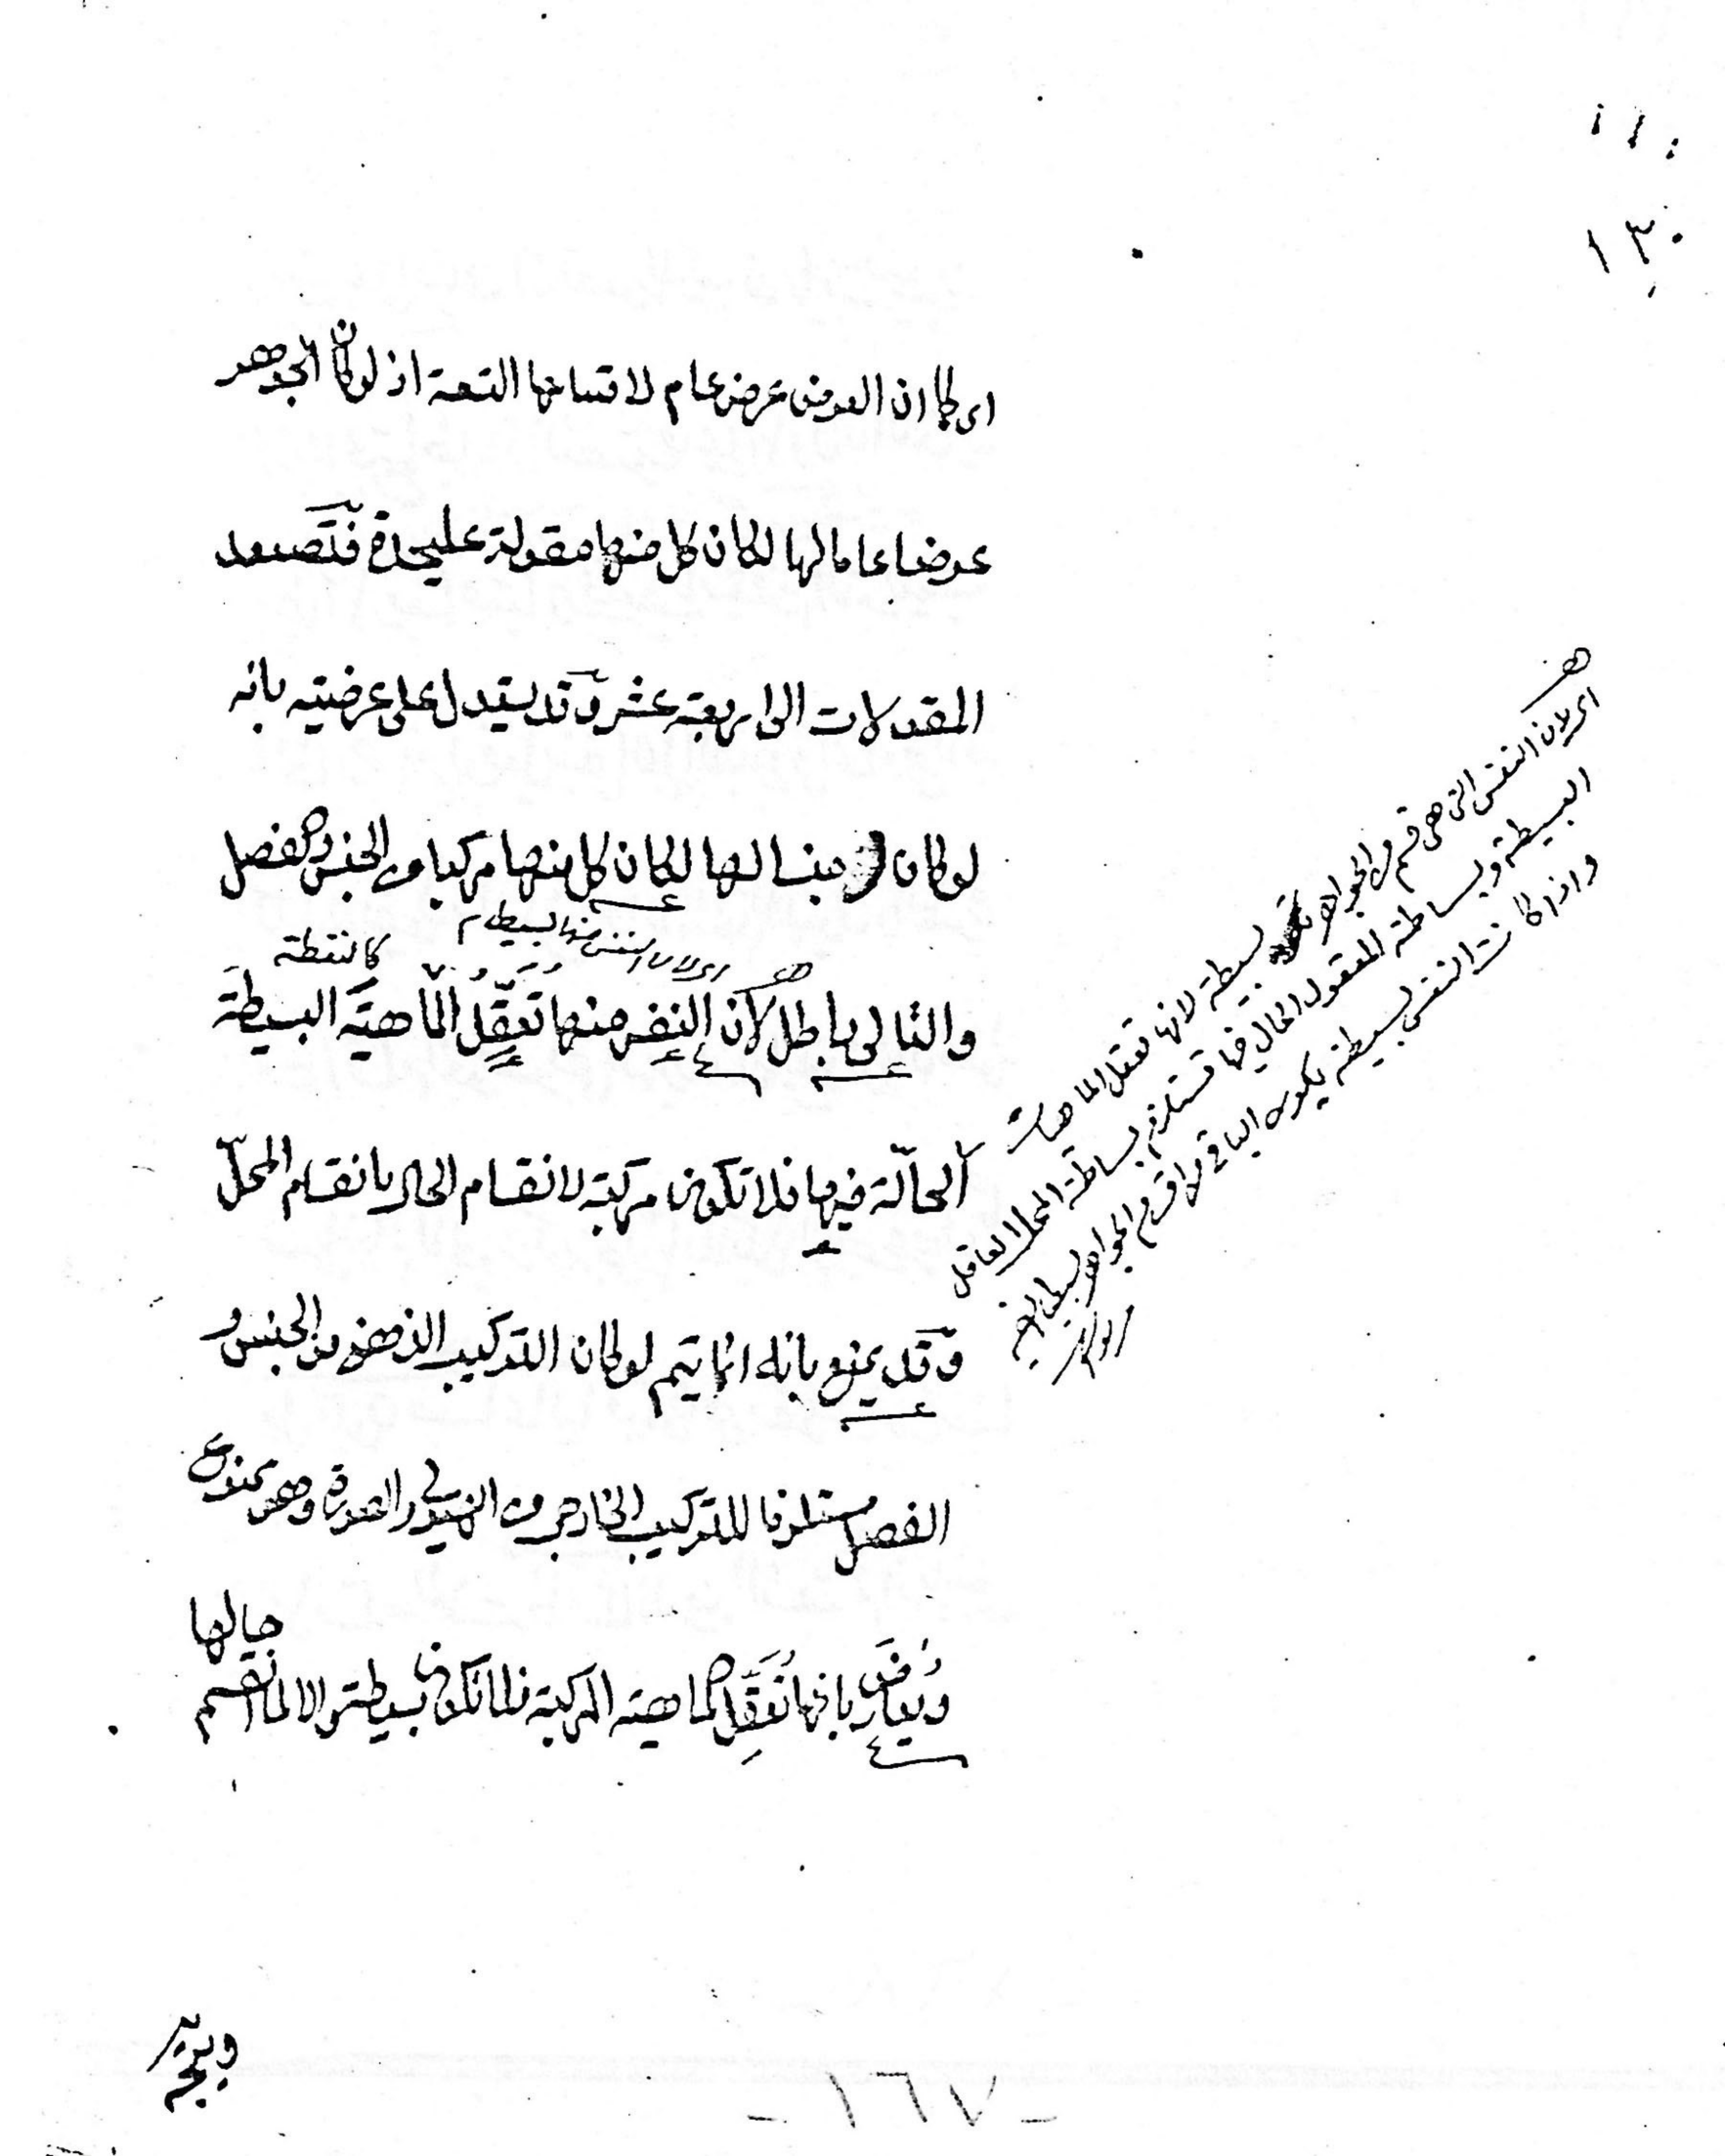 ١٣٠
اى كما ان العرض عرض عام لاقسامها التسعة اذ لو كان الجوهر
عرضا عاما لها لكان كل منها مقولة عليحدة فتصعد
المقولات الى اربعة عشر وقد يستدل على عرضيته بانه
لو كان جنسا لها لكان كل منها مركبا من الجنس والفصل
اى لان النفس منها بسيطة م
كالنقطة
والتالى باطل لان النفس منها تعقل الماهية البسيطة
الحالّة فيها فلا تكون مركبة لانقسام الحال بانقسام المحلّ
وقد يمنع بانه انما يتم لو كان التركيب الذهنى من الجنس و
الفصل مستلزما للتركيب الخارجى من الهيولى والصورة وهو ممنوع
ويعارض بانها تعقل الماهية المركبة فلا تكون بسيطة والا لما انقسم
حالها
اى لان النفس التى هى قسم من الجواهر بسيطة لانها تعقل الماهية
البسيطة وبساطة المعقول الحال فيها تستلزم بساطة المحل العاقل
واذا كانت النفس بسيطة يكون الباقى من اقسام الجواهر
ويجوز
- ١٦٧ -